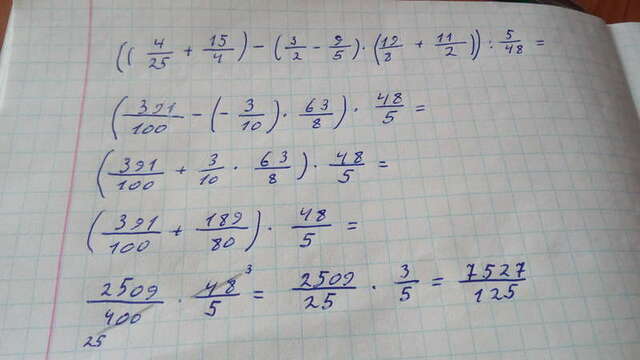 ((4/25 + 15/4) - (3/2 - 9/5) · (19/8 + 11/2)) : 5/48 =
(391/100 - (-3/10) · 63/8) · 48/5 =
(391/100 + 3/10 · 63/8) · 48/5 =
(391/100 + 189/80) · 48/5 =
2509/400 · 48/5 = 2509/25 · 3/5 = 7527/125
25 3